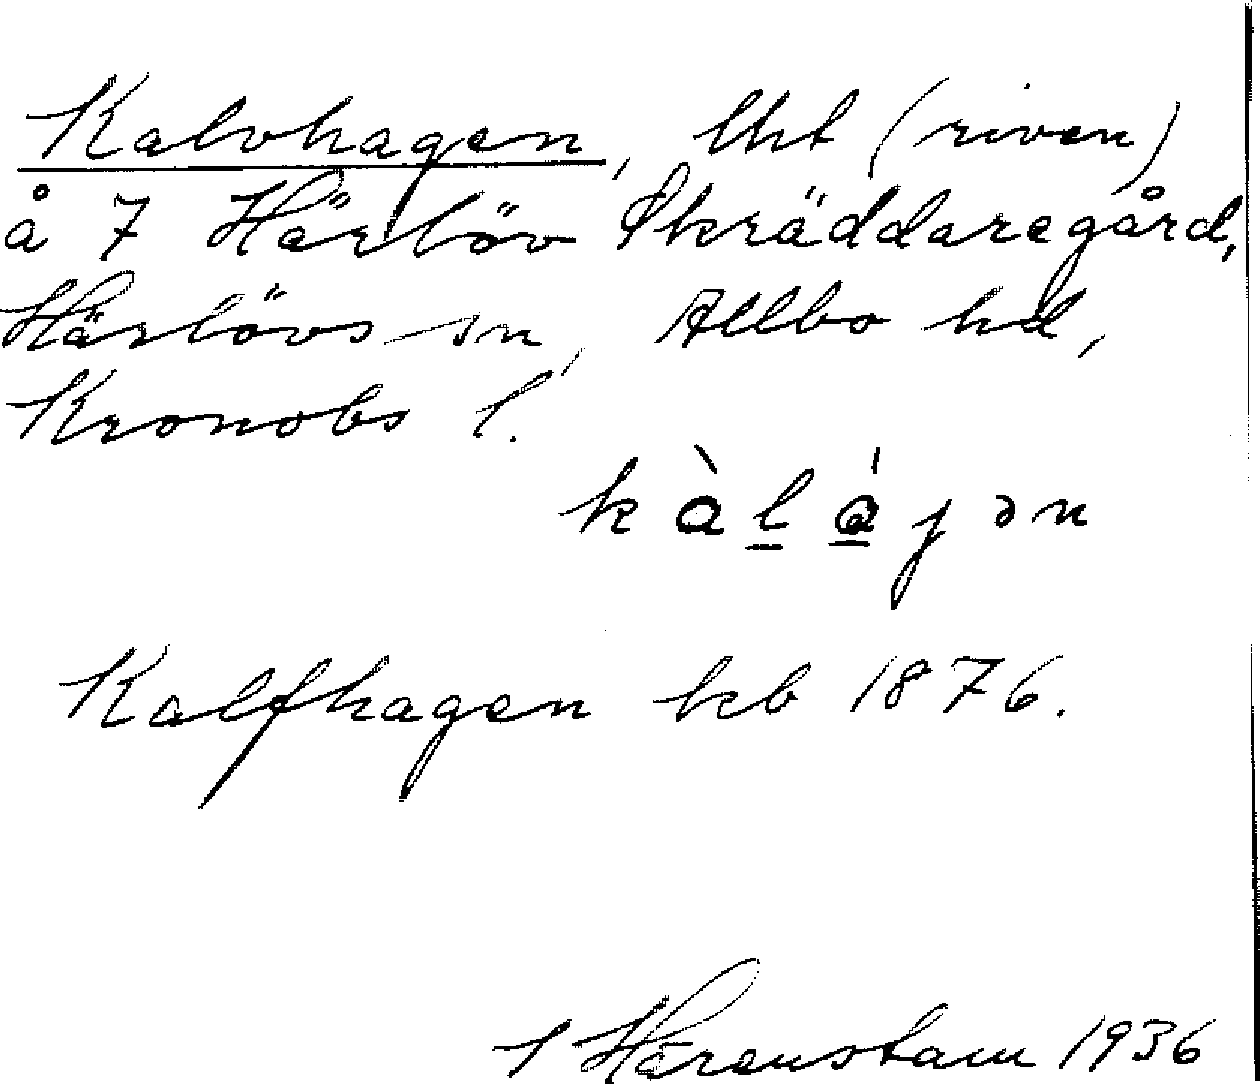 Kalvhagen, lht (riven)
å 7 Härlöv Skräddaregård,
Härlövs sn, Allbo hd,
Kronobs l.
kàláɡən
Kalfhagen kb 1876.
Härenstam 1936